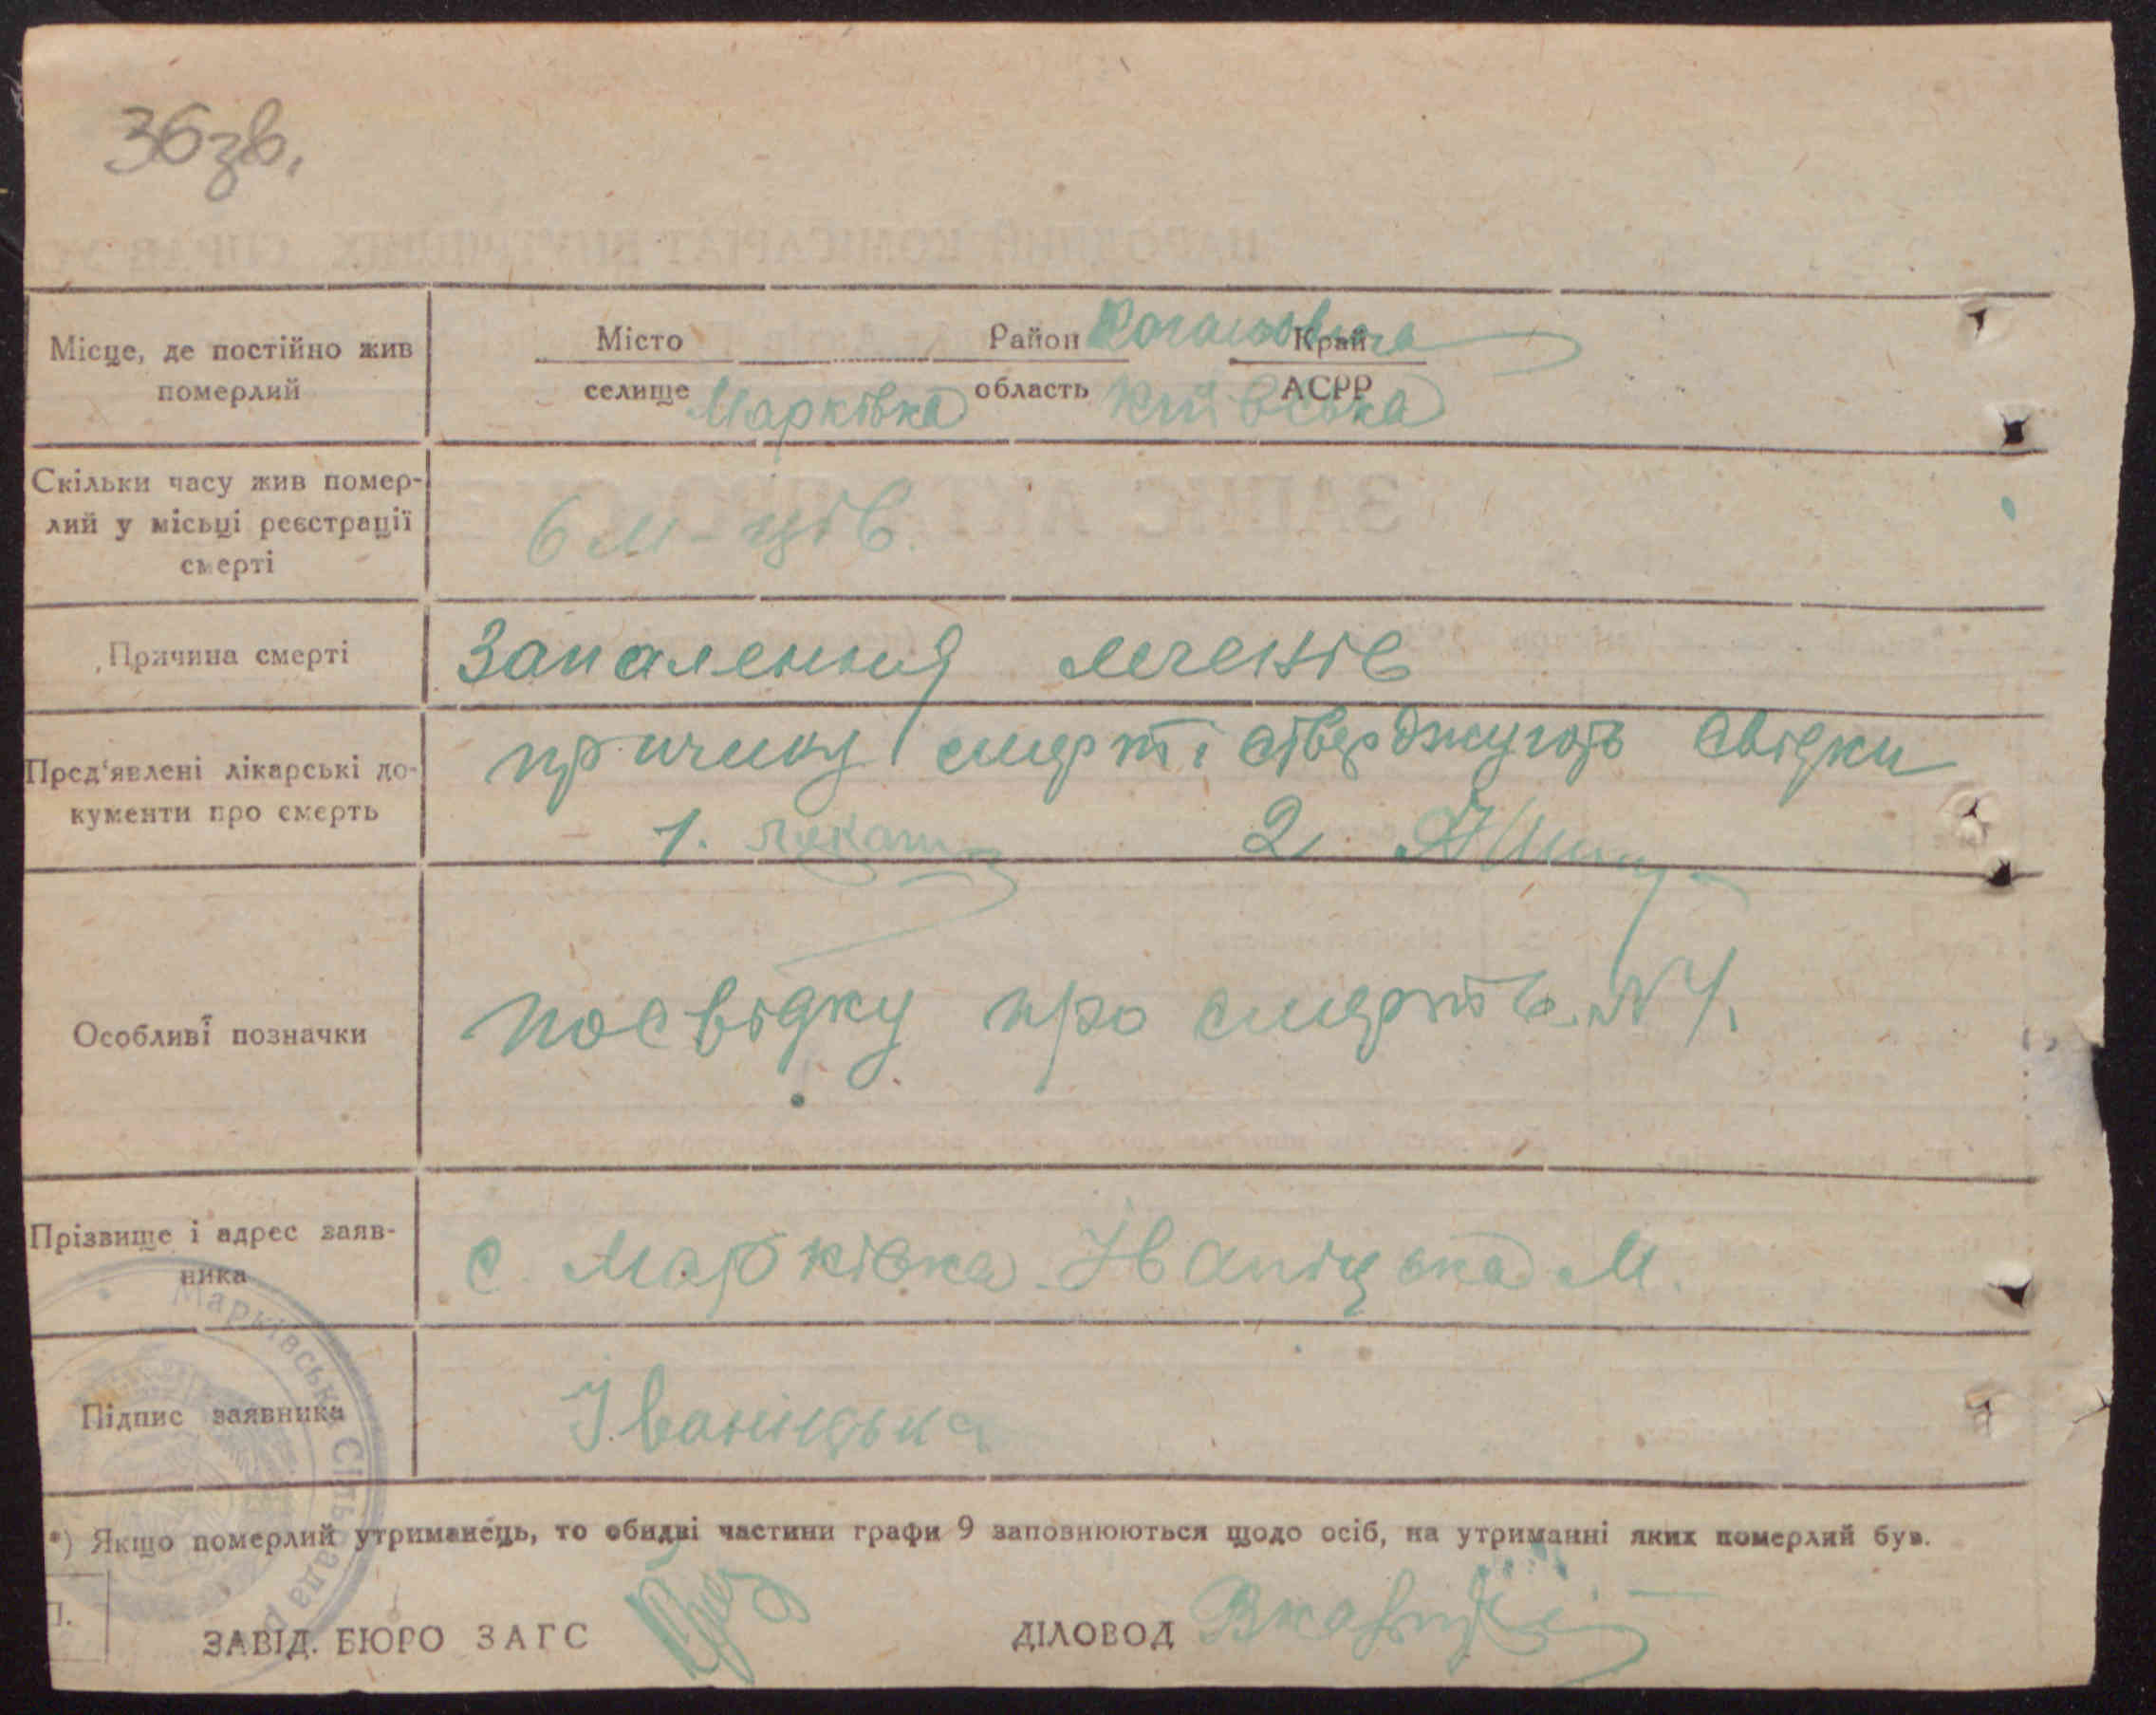 36зв.
Місце, де постійно жив померлий
Місто Район Край
селище Марківка область Київська АСРР
Скільки часу жив помер-
лий у місьці реєстрації
смерті
6 м-ців.
Причина смерті
Запалення легенів
Пред'явлені лікарські до-
кументи про смерть
причину смерті стверджують свідки
1. 2
Особливі позначки
посвідку про смерть N
Прізвище і адрес заяв-
ника
с. Марківка Іваніцька М.
Підпис заявника
Іваницька
Марківська Сіль рада
*) Якщо померлий утриманець, то обидві частини графи 9 заповнюються щодо осіб, на утриманні яких померлий був.
П.
ЗАВІД. БЮРО ЗАГС
ДІЛОВОД